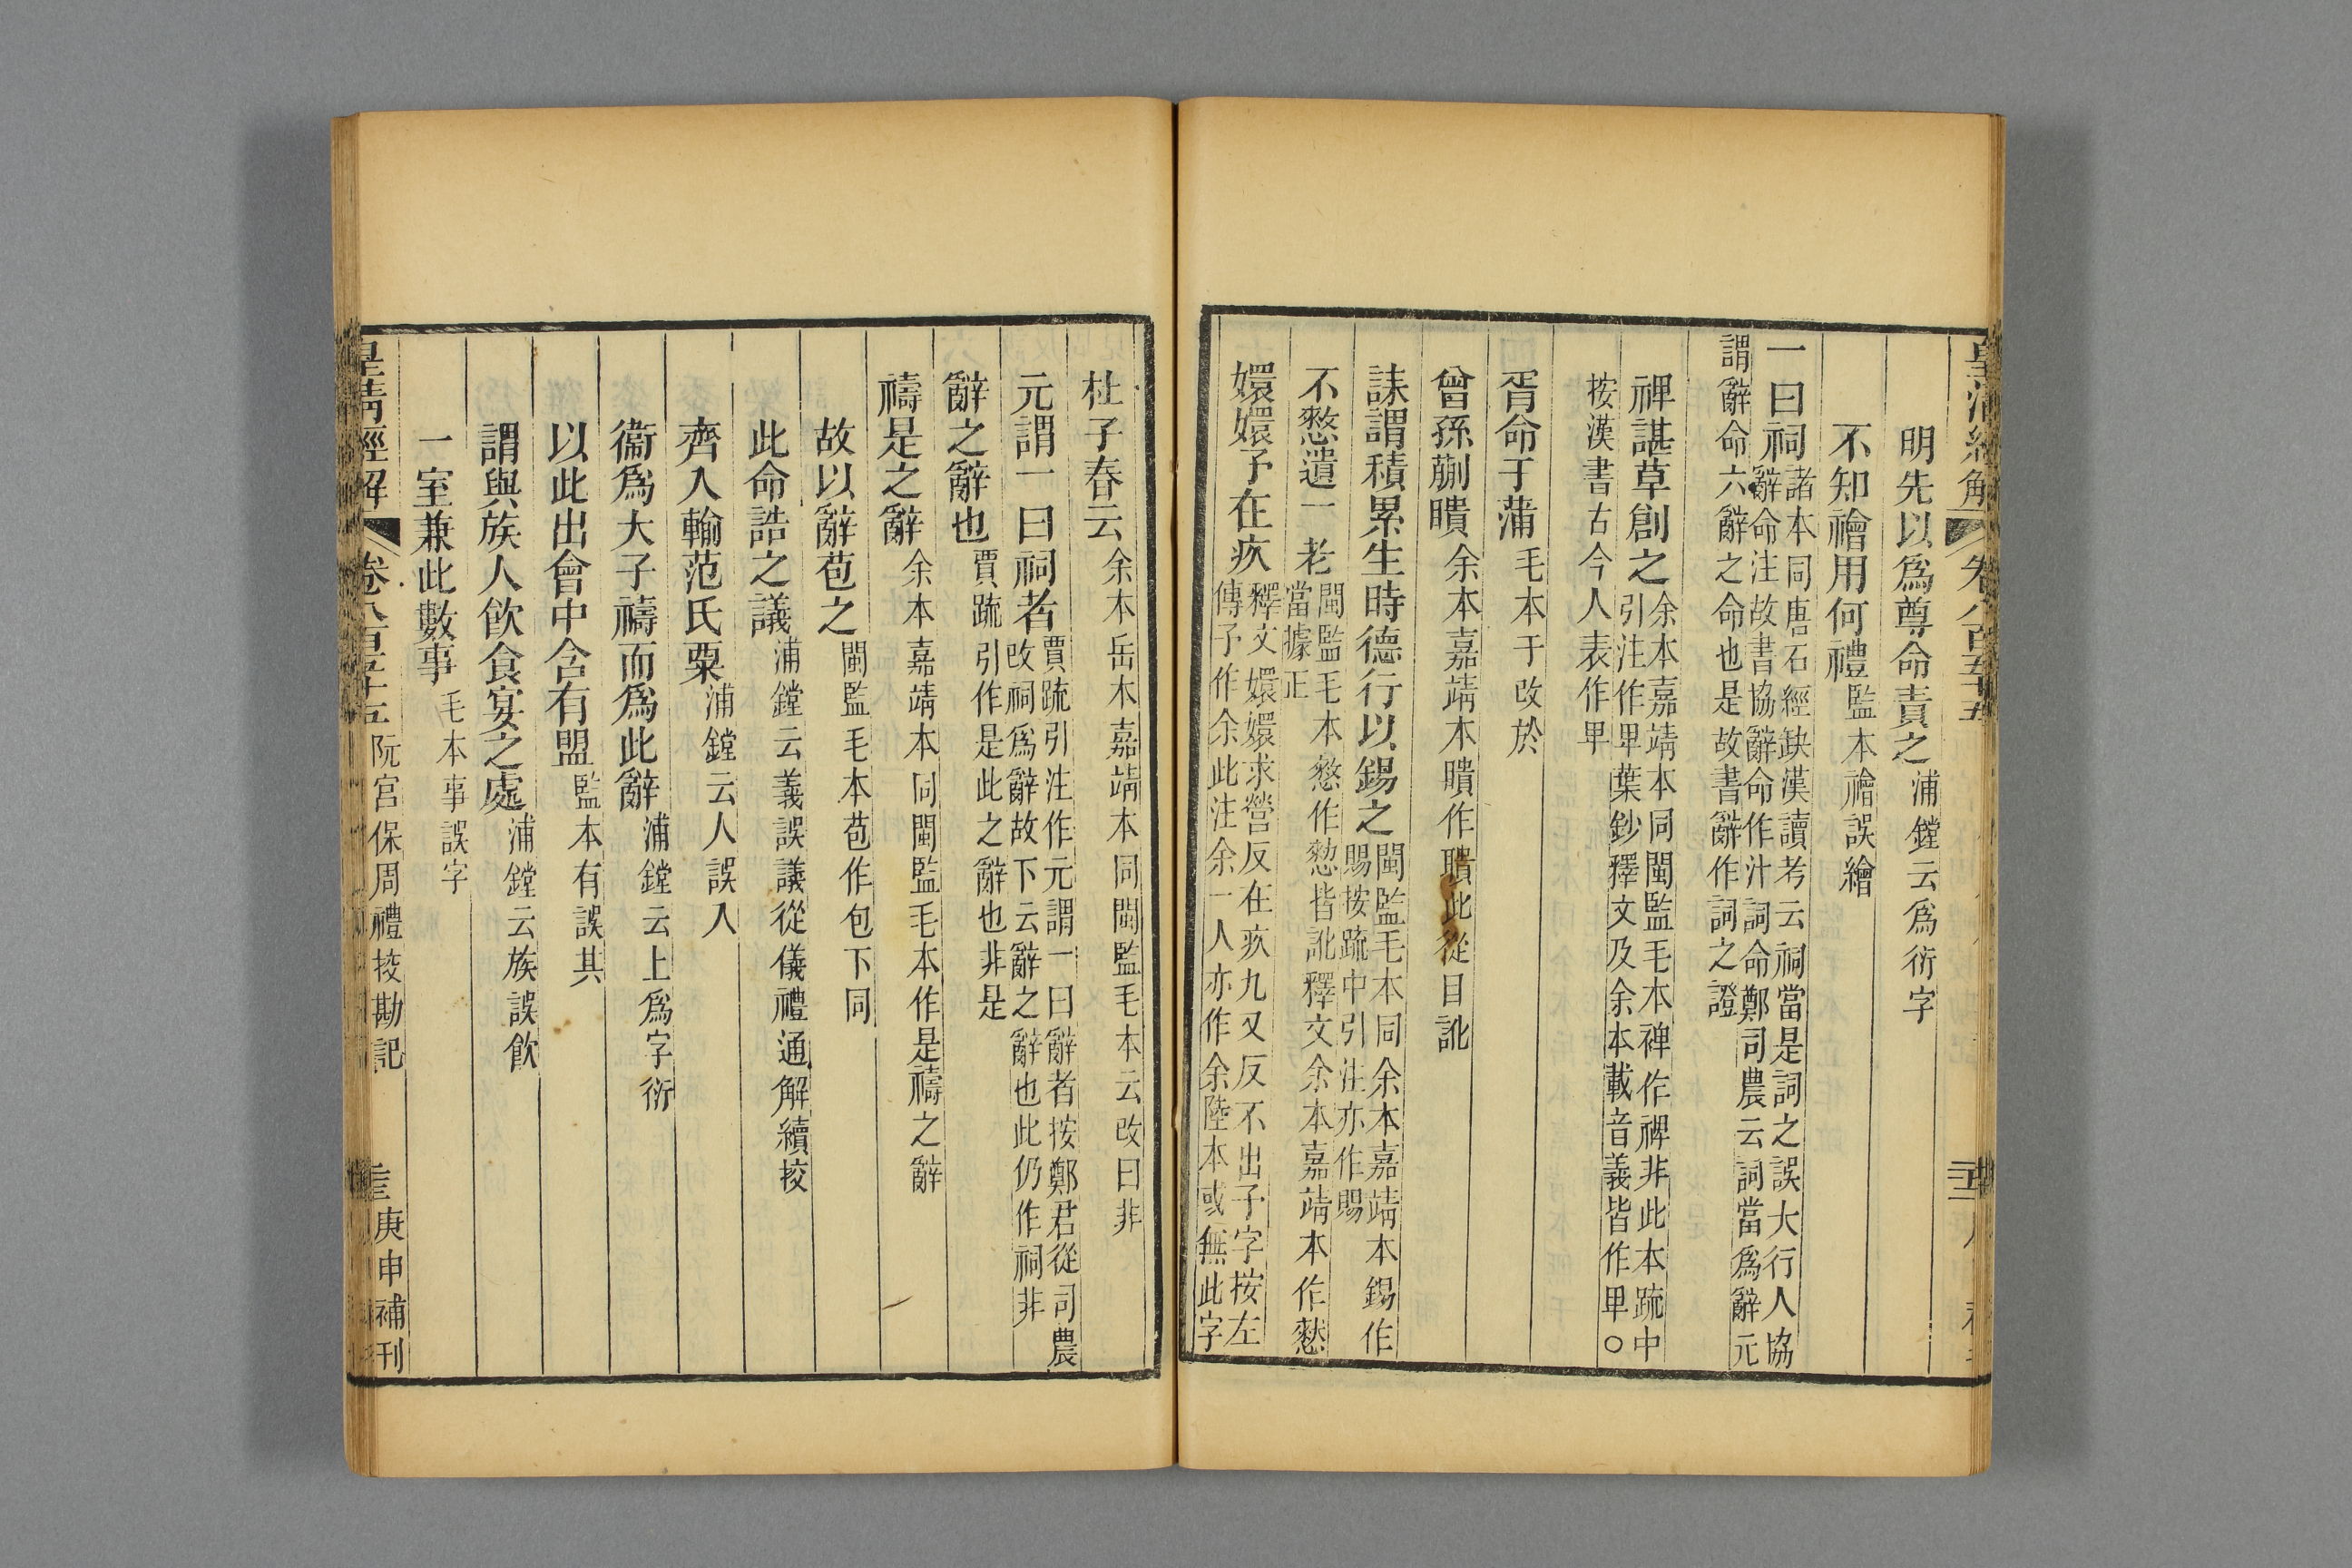 皇清經解 卷八百五十五
明先以爲尊命責之浦鏜云爲衍字
不知禬用何禮監本禬誤繪
一曰祠諸本同唐石經缺漢讀考云祠當是詞之誤大行人協
辭命注故書協辭命作汁詞命鄭司農云詞當爲辭元
謂辭命六辭之命也是故書辭作詞之證
裨諶草創之余本嘉靖本同閩監毛本裨作禆非此本疏中
引注作卑葉鈔釋文及余本載音義皆作卑○
按漢書古今人表作卑
胥命于蒲毛本于改於
曾孫蒯聵余本嘉靖本聵作聵此從目訛
誄謂積累生時德行以錫之閩監毛本同余本嘉靖本錫作
賜按疏中引注亦作賜
不憖遺一老閩監毛本憖作憗皆訛釋文余本嘉靖本作憖
當據正
嬛嬛予在疚釋文嬛嬛求營反在疚九又反不出予字按左
傳予作余此注余一人亦作余陸本或無此字
杜子春云余本岳本嘉靖本同閩監毛本云改曰非
元謂一曰祠者賈疏引注作元謂一曰辭者按鄭君從司農
改祠爲辭故下云辭之辭也此仍作祠非
辭之辭也賈疏引作是此之辭也非是
禱是之辭余本嘉靖本同閩監毛本作是禱之辭
故以辭苞之閩監毛本苞作包下同
此命誥之議浦鏜云義誤議從儀禮通解續挍
齊人輸范氏粟浦鏜云人誤入
衞爲大子禱而爲此辭浦鏜云上爲字衍
以此出會中含有盟監本有誤其
謂與族人飲食宴之處浦鏜云族誤飲
一室兼此數事毛本事誤字
皇清經解 卷八百五十五 阮宮保周禮挍勘記 庚申補刊